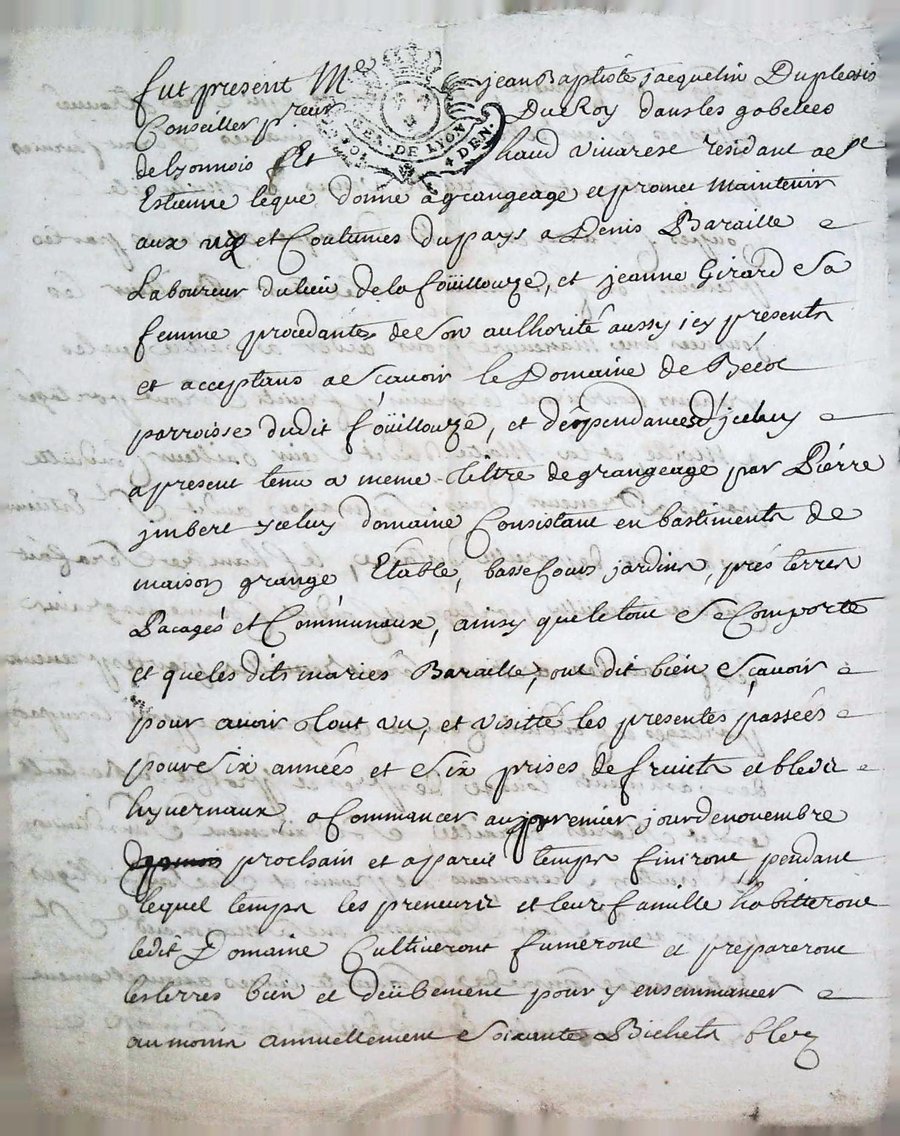 fut present Me jean Baptiste jacquelin Duplessis
GEN. DE LYON
4 DEN.
Conseiller p.reur Du Roy dans les gabelles
de lyonnois et haud vivarese residant a st
Estienne leque donne a grangeage et promet Maintenir
aux us et Coutumes du pays a Denis Baraille
Laboureur du lieu de la foüillouze, et jeanne Girard sa
femme procedante de son authorité aussy icy presents
et acceptans a sçavoir le Domaine de Bécot
parroisse dudit foüillouze, et dépendances d'jceluy
a present tenu a meme tiltre de grangeage par Piérre
jmbert jceluy domaine Consistant en bastiments de
maison grange Etable, basse Cour jardins, prés terres
Pacagés et Communeaux, ainsy que le tout se Comporte
et que les dits mariés Baraille, ont dit bien sçavoir
pour avoir le tout vu, et visitté les presentes passées
pour six années et six prises de fruits et bleds
hyvernaux, a Commancer au premier jour de novembre
prochain et a pareil temps finiront pendant
lequel temps les preneurs et leur famille habitteront
ledit Domaine Cultiveront fumeront et prepareront
les terres bien et deübement pour y ensemmancer
au moins annuellement soixante Bichets bled